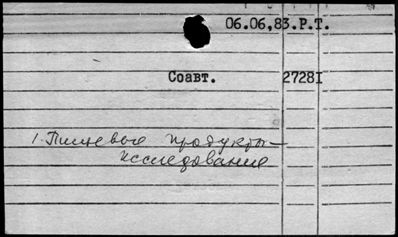 06.06,83.Р.Т.
Соавт. 2728I
1. Пищевые продукты-
исследование